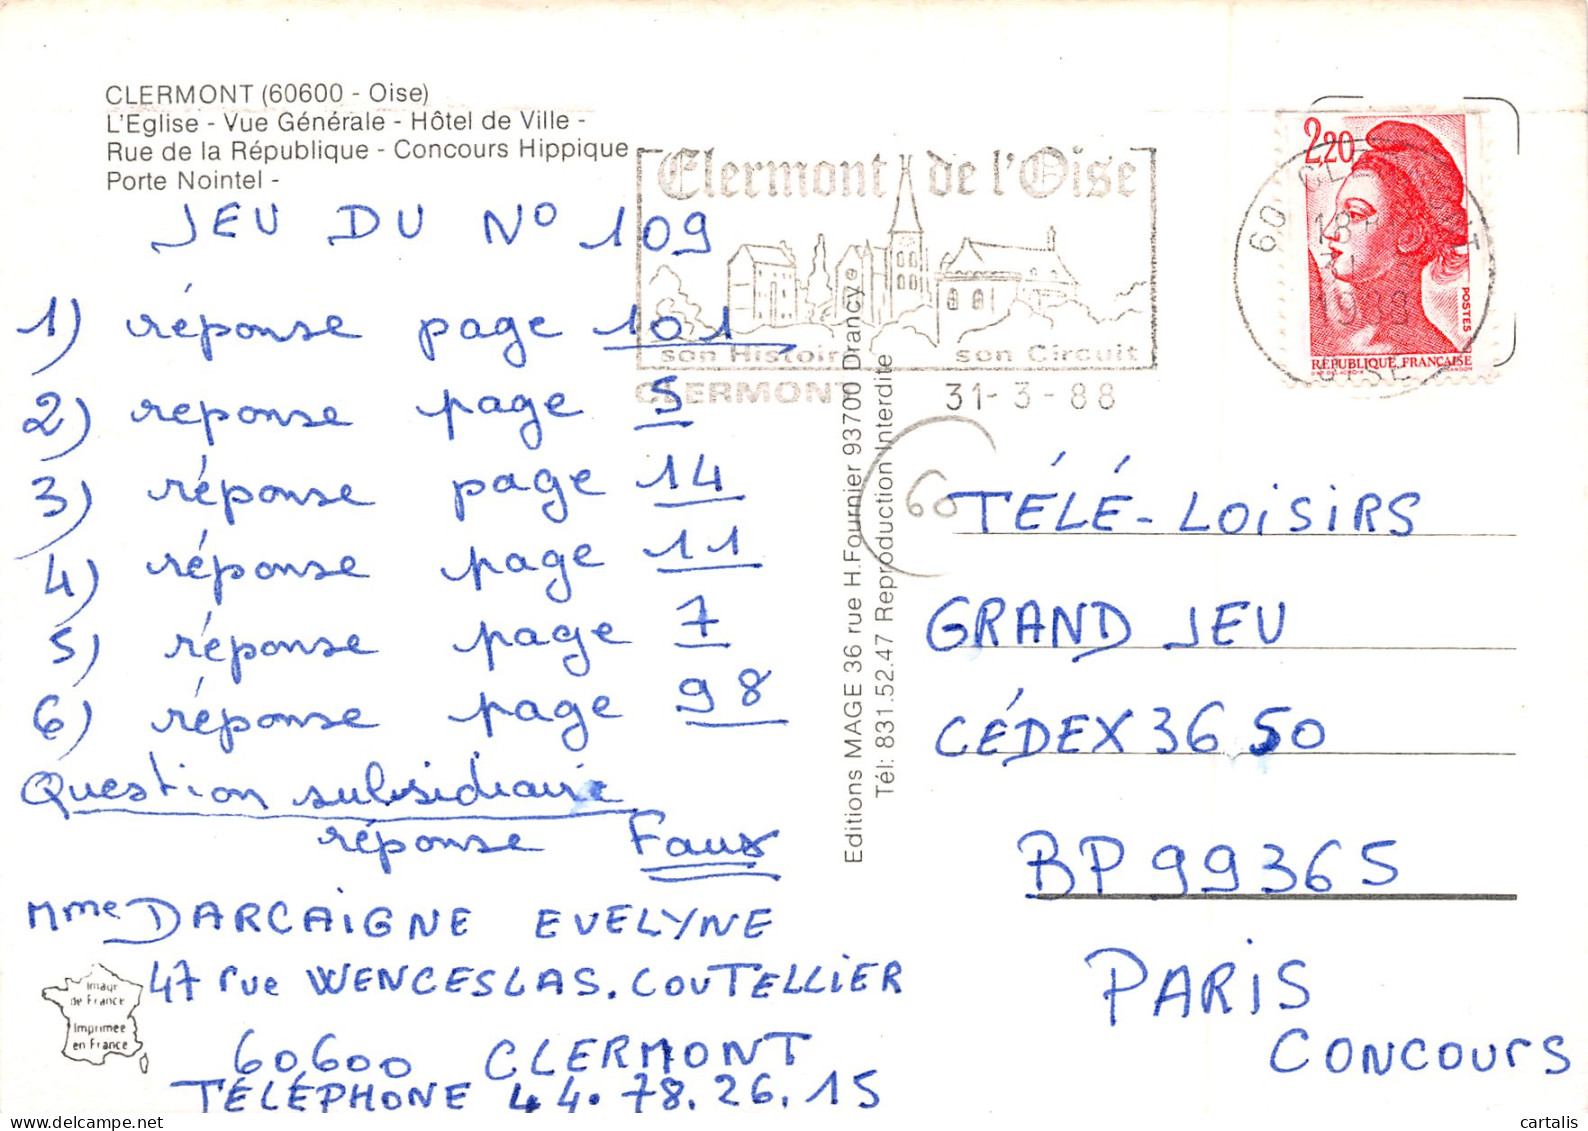 CLERMONT (60600 - Oise)
L'Eglise - Vue Générale - Hôtel de Ville -
Rue de la République - Concours Hippique
Porte Nointel -
JEU DU N° 109
1) réponse page 101
2) reponse page 5
3) réponse page 14
4) réponse page 11
5) réponse page 7
6) réponse page 98
Question subsidiaire
réponse Faux
Mme DARCAIGNE EVELYNE
47 rue WENCESLAS. COUTELLIER
60600 CLERMONT
TÉLÉPHONE 44.78.26.15
Image
de France
Imprimée
en France
Clermont de l'Oise
son Histoire son Circuit
CLERMONT 31-3-88
Editions MAGE 36 rue H.Fournier 93700 Drancy
Tél: 831.52.47 Reproduction Interdite
2,20
POSTES
RÉPUBLIQUE FRANÇAISE
60
1988
OISE
60
TÉLÉ-LOISIRS
GRAND JEU
CÉDEX 3650
BP 99365
PARIS
CONCOURS
cartalis